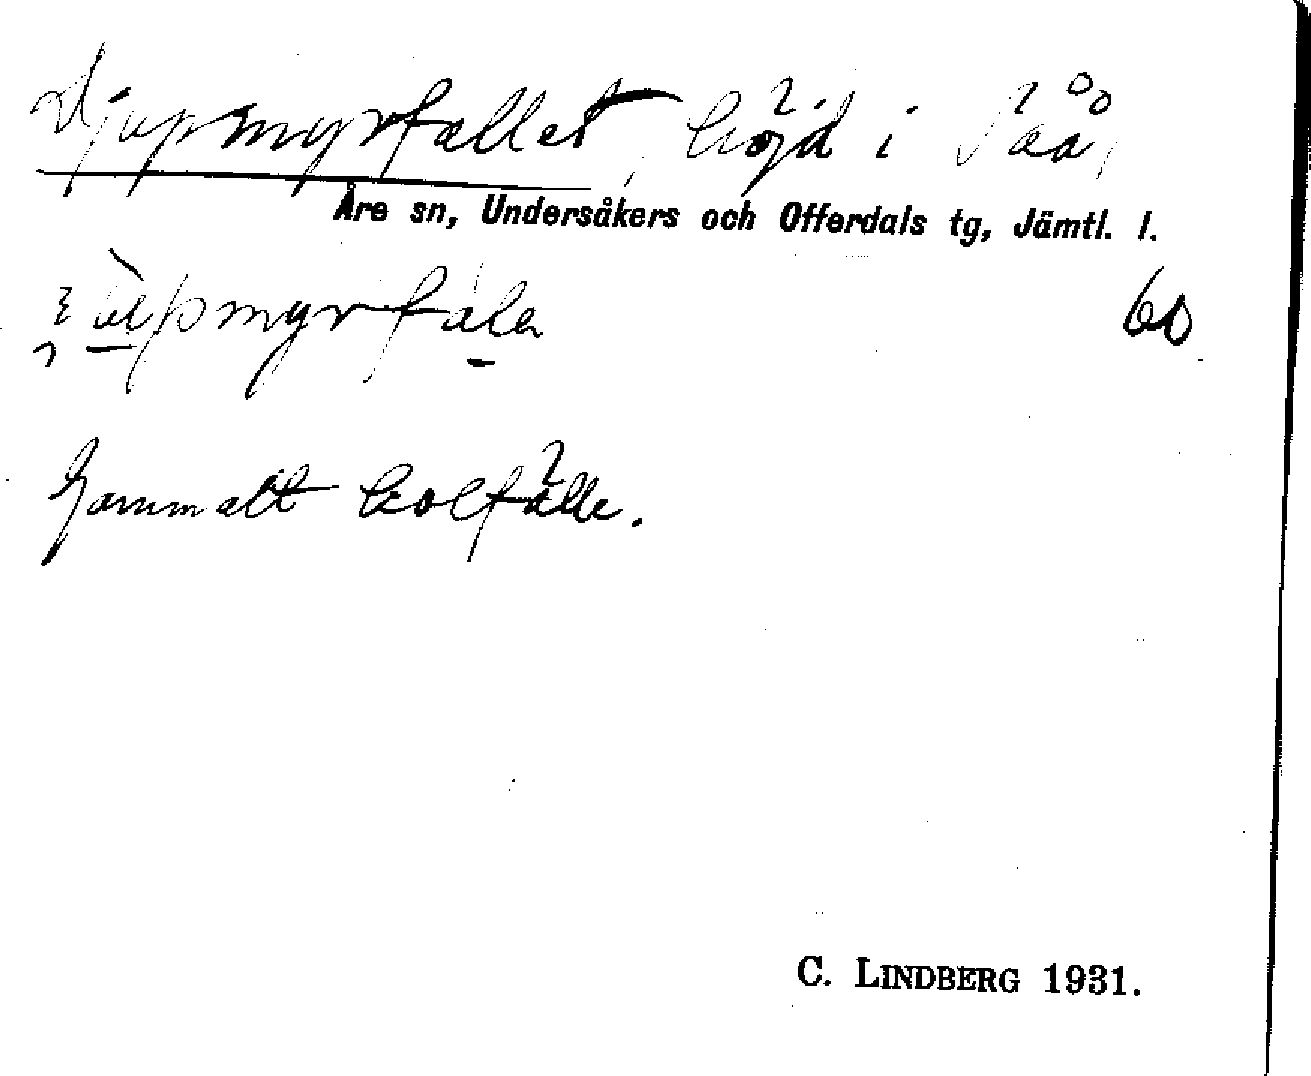 Djupmyrfallet, höjd i Såå,
Åre sn, Undersåkers och Offerdals tg, Jämtl. l.
60
Gammalt kolfälle.
C. LINDBERG 1931.